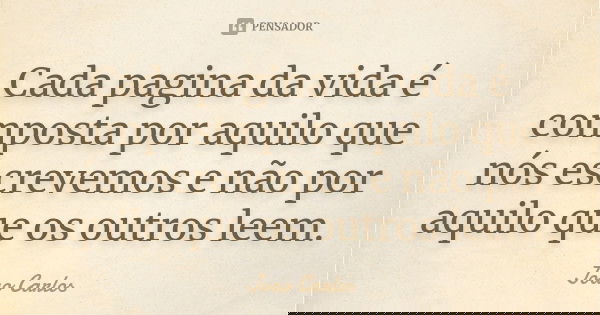 PENSADOR
Cada pagina da vida é
composta por aquilo que
nós escrevemos e não por
aquilo que os outros leem.
João Carlos